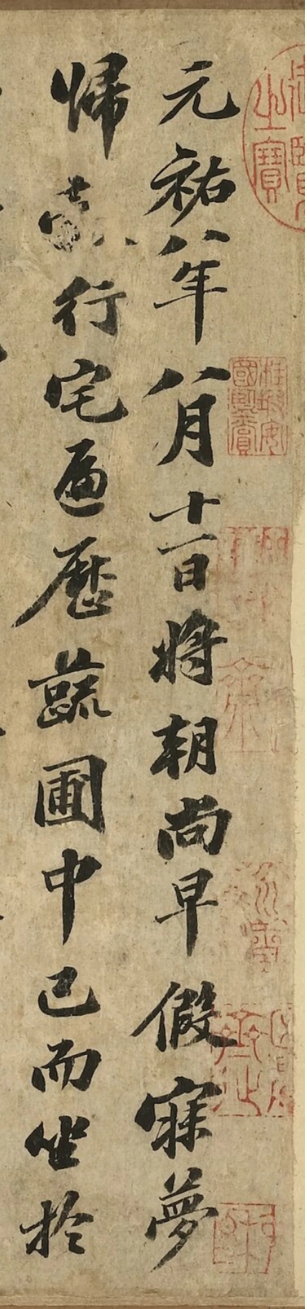 元祐八年八月十一日將朝尚早假寐夢
歸行宅遍歷蔬圃中已而坐於